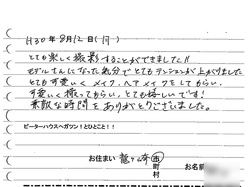 H30年8月12日(日)
とても楽しく撮影することができました!!
モデルさんになった気分でとてもテンションが上がりました
とても可愛くメイク、ヘアメイクをしてもらい、
可愛く撮ってもらい、とても嬉しいです!
素敵な時間をありがとうございました。
ピーターハウスへガツン!とひとこと!!
お住まい 龍ヶ崎 市
町
村
お名前